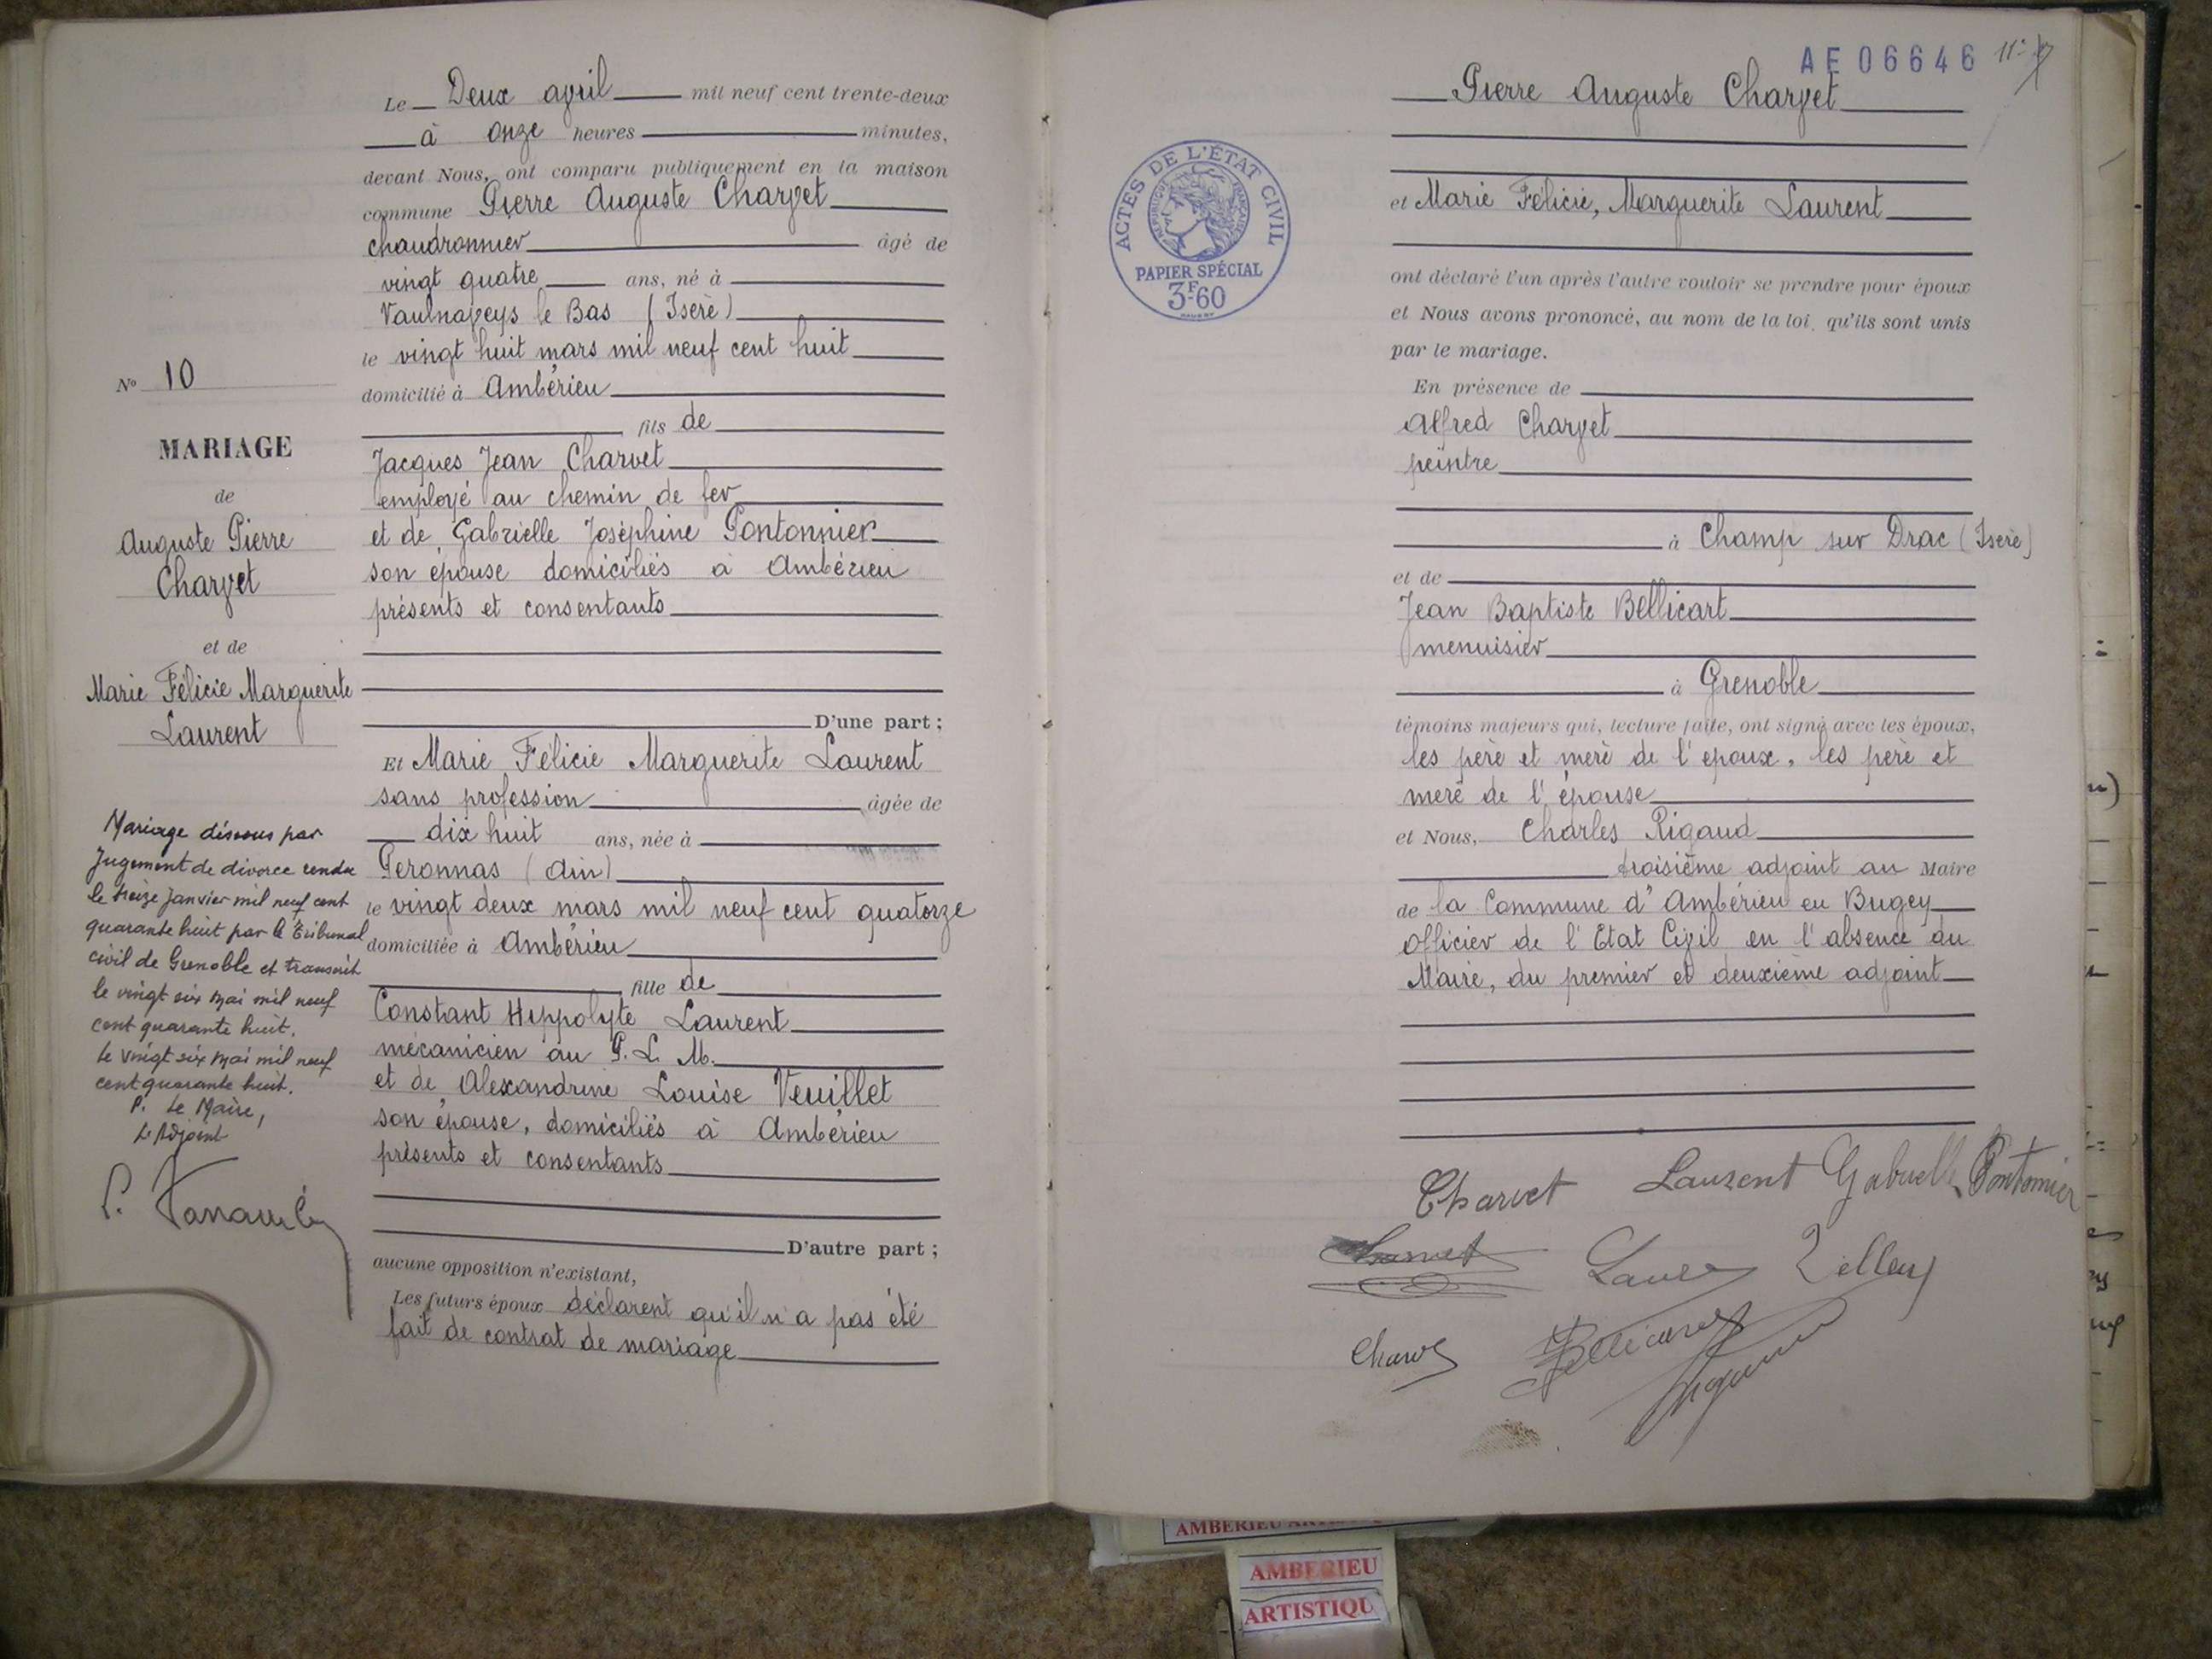 N° 10
MARIAGE
de
Auguste Pierre
Charvet
et de
Marie Félicie Marguerite
Laurent
Mariage dissous par
Jugement de divorce rendu
le treize janvier mil neuf cent
quarante huit par le Tribunal
civil de Grenoble et transcrit
le vingt six Mai mil neuf
cent quarante huit.
Le vingt six Mai mil neuf
cent quarante huit.
P. Le Maire,
L'Adjoint
Le Deux avril mil neuf cent trente-deux
à onze heures minutes,
devant Nous, ont comparu publiquement en la maison
commune Pierre Auguste Charvet
chaudronnier âgé de
vingt quatre ans, né à
Vaulnaveys le Bas (Isère)
le vingt huit mars mil neuf cent huit
domicilié à Ambérieu
fils de
Jacques Jean Charvet
employé au chemin de fer
et de Gabrielle Joséphine Pontonnier
son épouse domiciliés à Ambérieu
présents et consentants
D'une part ;
Et Marie Félicie Marguerite Laurent
sans profession âgée de
dix huit ans, née à
Peronnas (Ain)
le vingt deux mars mil neuf cent quatorze
domiciliée à Ambérieu
fille de
Constant Hippolyte Laurent
mécanicien au P. L. M.
et de Alexandrine Louise Veuillet
son épouse, domiciliés à Ambérieu
présents et consentants
D'autre part ;
aucune opposition n'existant,
Les futurs époux déclarent qu'il n'a pas été
fait de contrat de mariage
AE 06646
Pierre Auguste Charvet
et Marie Félicie, Marguerite Laurent
ACTES DE L'ÉTAT CIVIL
RÉPUBLIQUE FRANÇAISE
PAPIER SPÉCIAL
3F60
ont déclaré l'un après l'autre vouloir se prendre pour époux
et Nous avons prononcé, au nom de la loi, qu'ils sont unis
par le mariage.
En présence de
Alfred Charvet
peintre
à Champ sur Drac (Isère)
et de
Jean Baptiste Bellicart
menuisier
à Grenoble
témoins majeurs qui, lecture faite, ont signé avec les époux,
les père et mère de l'époux, les père et
mère de l'épouse
et Nous, Charles Rigaud
troisième adjoint au Maire
de la Commune d'Ambérieu en Bugey
officier de l'Etat Civil en l'absence du
Maire, du premier et deuxième adjoint
Charvet Laurent Gabrielle Pontonnier
Charvet
AMBERIEU
AMBERIEU
ARTISTIQU